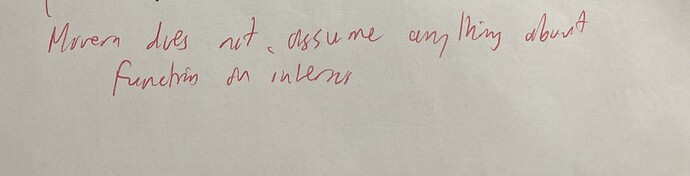 Morera does not assume anything about
function on interns